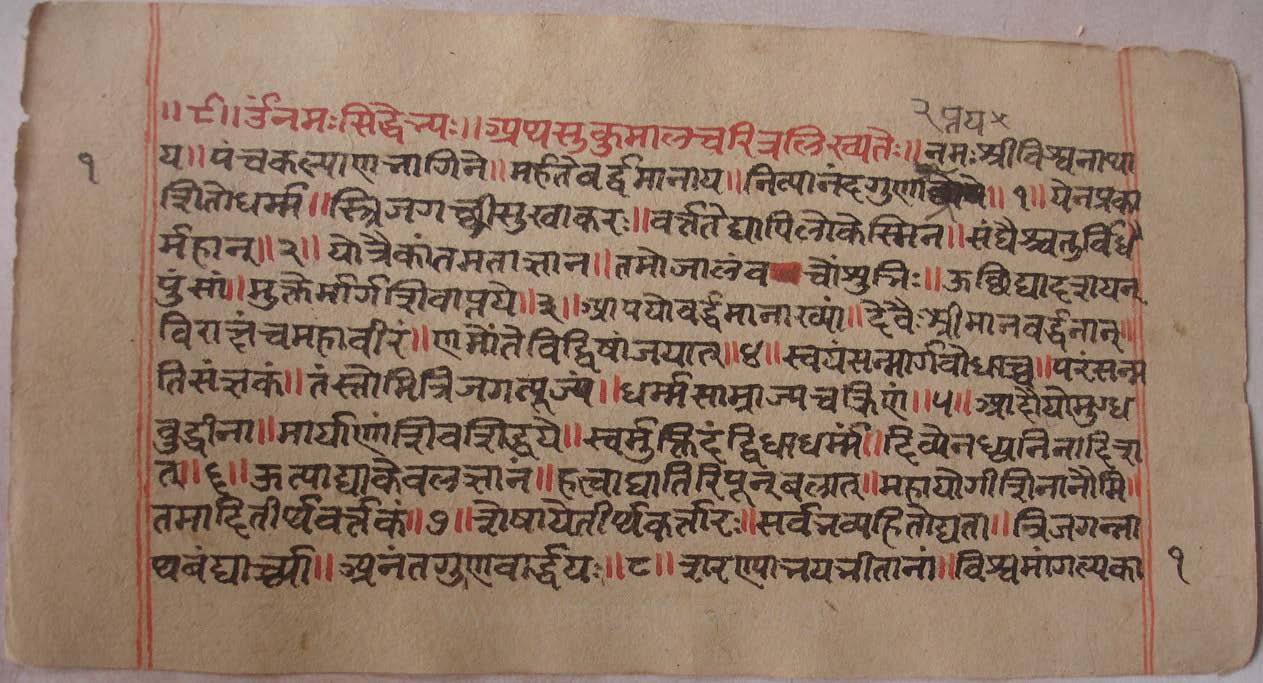 २प्नय×
॥८ी॥र्उंनमःसिद्धेभ्यः॥अथसुकुमालचरित्रलिख्यतैः॥नमःश्रीविश्वनाथा
१
य॥पंचकल्याणभागिने॥मर्हतेवर्द्धमानाय॥नित्यानंदगुणा॥१॥येनप्रका
शितोधर्म्म॥स्त्रिजगच्छ्रीसुखाकरः॥वर्त्ततेद्यापिलोकेस्मिन॥संघैश्चतुर्विधै
र्महान्॥२॥योत्रैकांतमताज्ञान॥तमोजालंवचोंशुभिः॥ऊछिद्यादृशयन्
पुंसां॥मुक्तेर्मार्गशिवाप्नये॥३॥आपयोवर्द्धमानाख्यां॥देवैःश्रीमानवर्द्धनान्॥
विराज्ञंचमहावीरं॥णमोंतेविद्विषांजयात्॥४॥स्वयंसन्मार्गवोधाच्च॥परंसन्म
तिसंज्ञकं॥तंस्तोमित्रिजगत्पूज्यं॥धर्म्मसाम्राज्यचक्रिणं॥५॥आदौयोमुग्ध
वुद्धीना॥मार्याणांशिवशिद्धये॥स्वर्मुक्तिदंद्विधाधर्म्मं॥दिव्येनध्वनिनादिशा
त॥६॥ऊत्पाद्याकेवलज्ञानं॥हत्वाघातिरिपून्बलात्॥महायोगीशिनानौमि॥
तमादितीर्थवर्त्तकं॥७॥शेषायेतीर्थकर्तारः॥सर्वभव्यहितोद्यता॥त्रिजगन्ना
थवंद्यार्च्या॥अनंतगुणवार्द्धयः॥८॥शरण्याभयभीतानां॥विश्वमांगल्यका
१